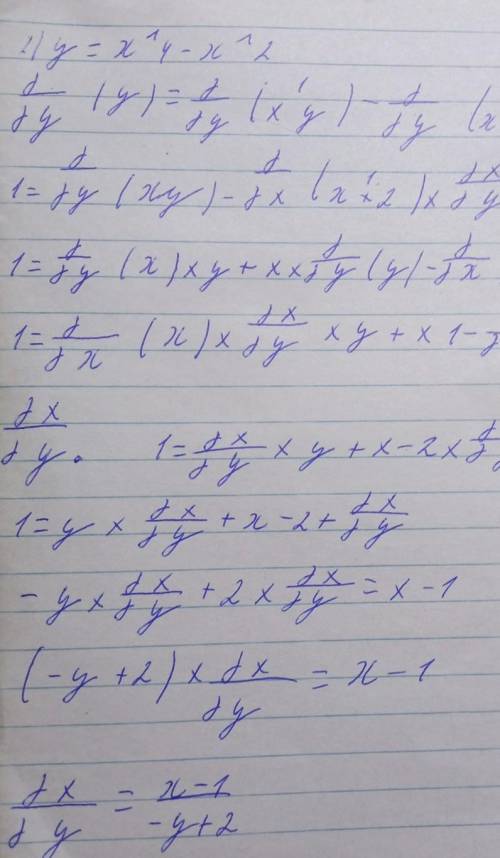 1) y = x^4 - x^2
d/dy (y) = d/dy (x'y) - d/dy (x
1 = d/dy (xy) - d/dx (x^1×2) × dx/dy
1 = d/dy (x) × y + x × d/dy (y) - d/dx
1 = d/dx (x) × dx/dy × y + x 1 -
dx/dy. 1 = dx/dy × y + x - 2 × d
1 = y × dx/dy + x - 2 + dx/dy
- y × dx/dy + 2 × dx/dy = x - 1
(-y + 2) × dx/dy = x - 1
dx/dy = x-1/-y+2